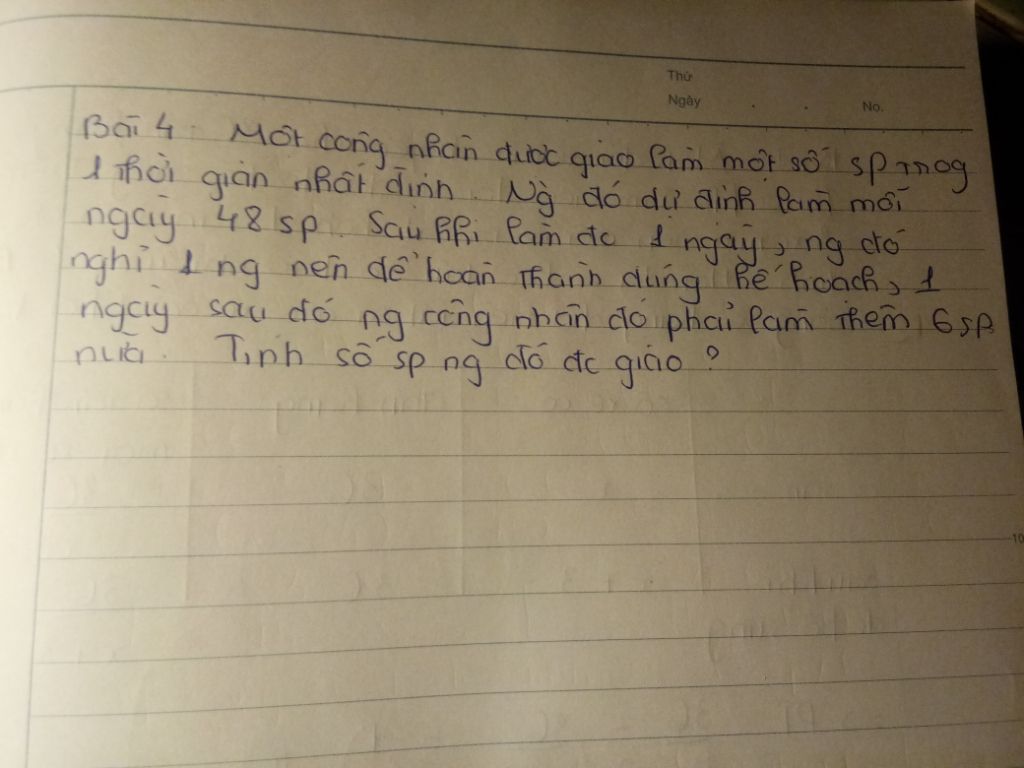 Thứ
Ngày . . No.
Bài 4: Một công nhân được giao làm một số sp trog
1 thời gian nhất định. Ng đó dự định làm mỗi
ngày 48 sp. Sau khi làm đc 1 ngày, ng đó
nghỉ 1 ng nên để hoàn thành đúng kế hoạch, 1
ngày sau đó ng công nhân đó phải làm thêm 6 sp
nữa. Tính số sp ng đó đc giao?
10